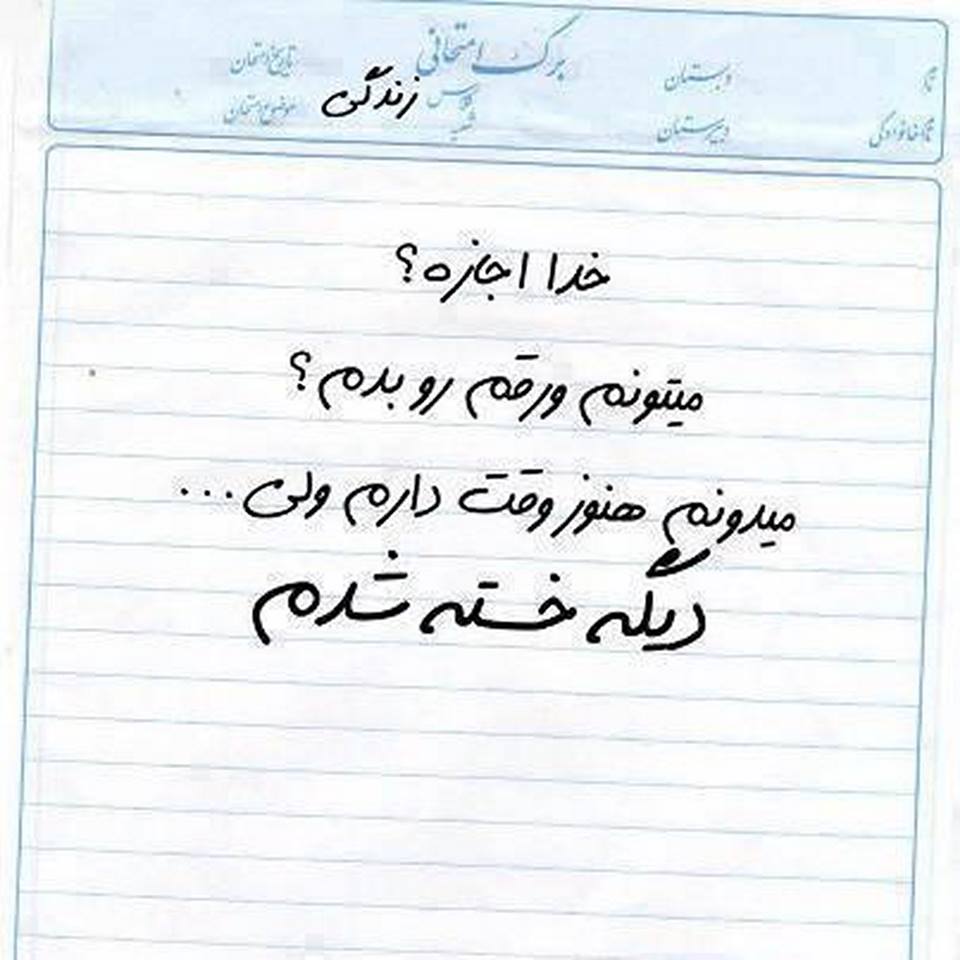 برگ امتحانی
نام دبستان تاریخ امتحان
نام خانوادگی دبیرستان کلاس شعبه موضوع امتحان زندگی
خدا اجازه؟
میتونم ورقم رو بدم؟
میدونم هنوز وقت دارم ولی...
دیگه خسته شدم